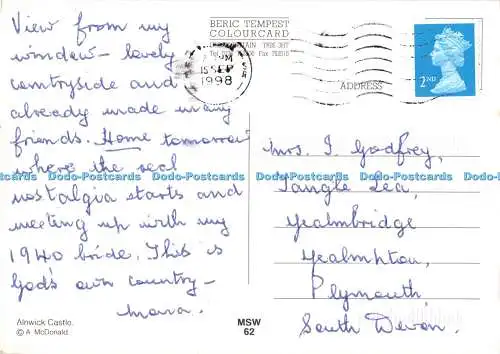 View from my
window - lovely
countryside and
already made many
friends. Home tomorrow
where the real
nostalgia starts and
meeting up with my
1940 bride. This is
God's own country -
Mona.
Alnwick Castle.
© A McDonald.
MSW
62
BERIC TEMPEST
COLOURCARD
PM
15 SEP
1998
ADDRESS
2ND
Mrs. I. Godfrey,
Tangle Lea,
Yealmbridge
Yealmpton,
Plymouth,
South Devon.
Dodo-Postcards Dodo-Postcards Dodo-Postcards Dodo-Postcards Dodo-Postcards